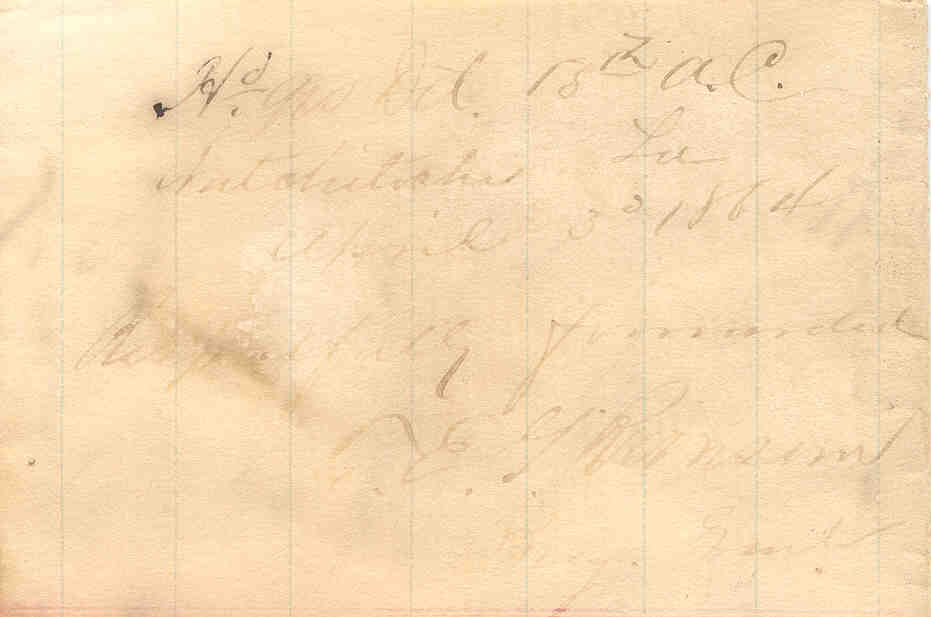 Hd. Qrs Det. 13th A.C.
Natchitoches La
April 3d 1864
Respectfully forwarded
T. E. G. Ransom
Brig. Genl